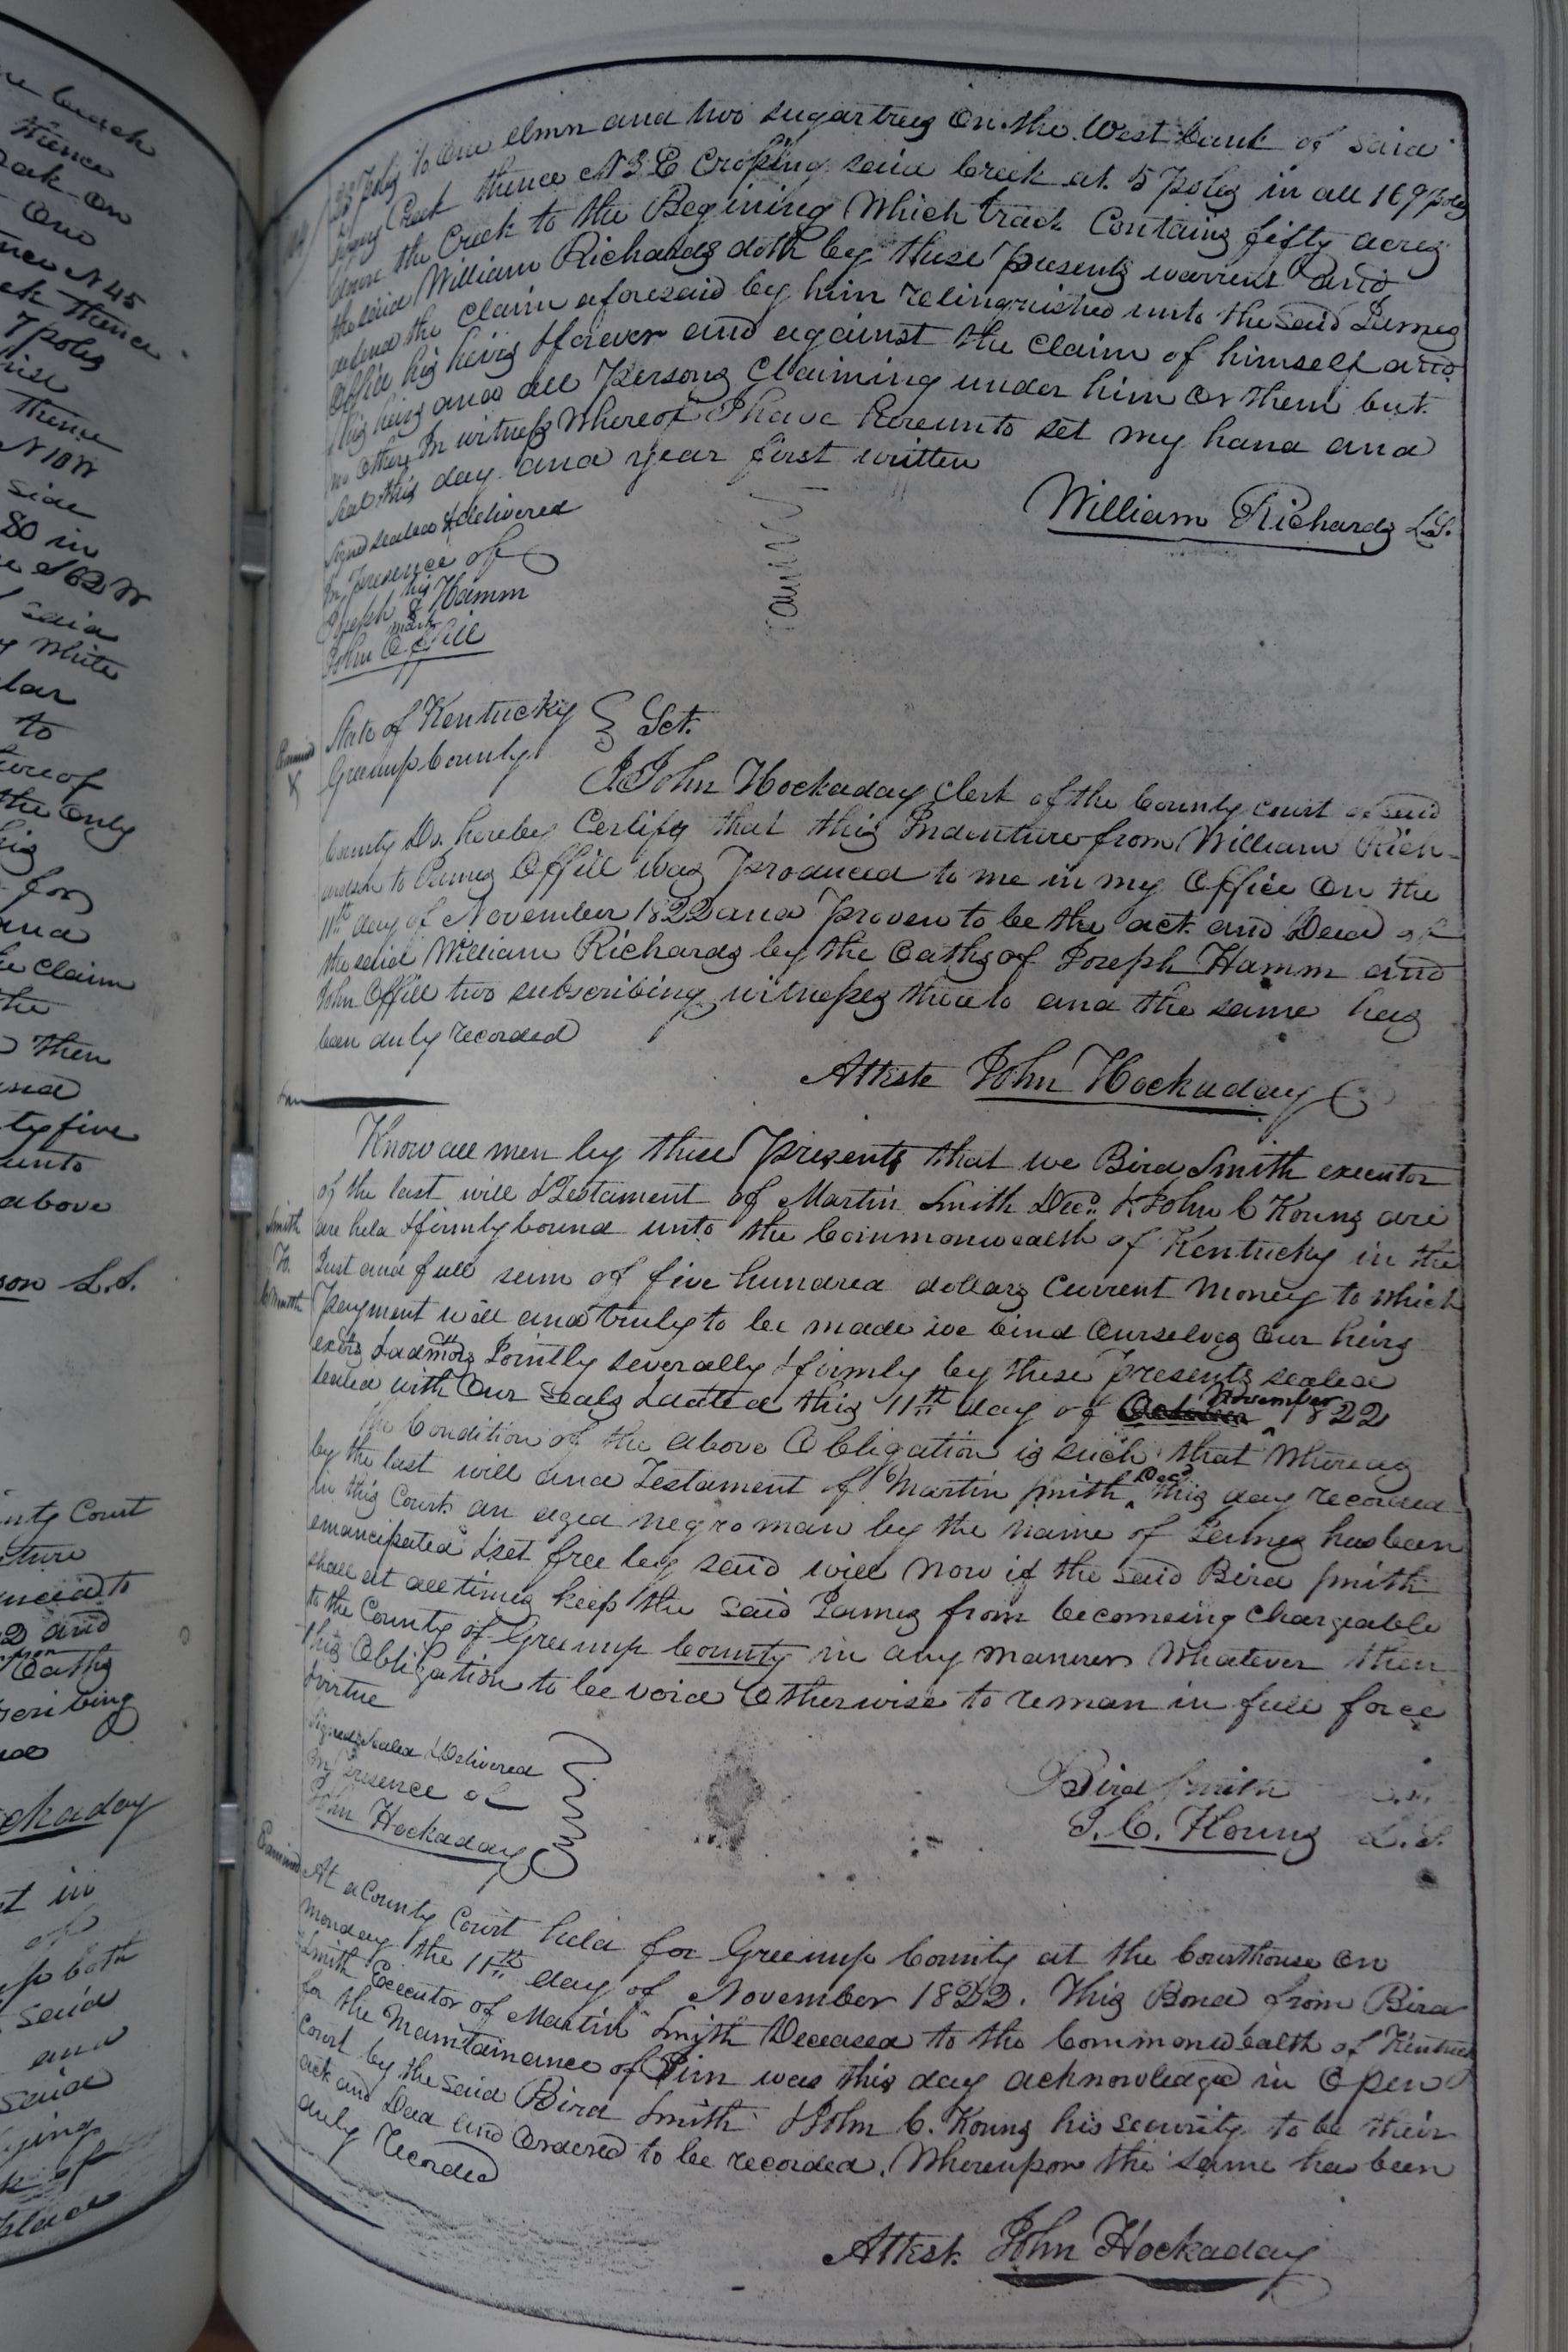 ne branch
thence
oak on
One
nce N 45
ck thence
7 poles
thence
N 10 W
side
80 in
S 62 W
said
White
lar
to
the Only
his
for
and
claim
the
then
ty five
unto
above
son L.S.
nty Court
ture
2 and
Oaths
scribing
ckaday
t in
of
both
said
and
said
poles to One elmn and two sugartrees On the West bank of said
Creek thence N 3 E Croping said Creek at 5 poles in all 169 poles
down the Creek to the Begining Which track Contains fifty acres
the said William Richards doth by these presents warrent and
defend the Claim aforesaid by him relinquished unto the said James
Offill his heirs & forever and against the Claim of himself and
his heirs and all Persons Claiming under him Or them but
no Others In witness Whereof I have hereunto set my hand and
seal this day and year first written
William Richards L.S.
Signed sealed & delivered
In presence of
Joseph his Hamm
mark
John Offill
State of Kentucky } Sct.
Greenup County
Examined
I John Hockaday Clerk of the County court of said
County Do hereby Certify that this Indenture from William Rich-
ardson to James Offill was produced to me in my Office On the
11th day of November 1822 and proven to be the act and Deed of
the said William Richards by the Oaths of Joseph Hamm and
John Offill two subscribing witnesses thereto and the same has
been duly recorded
Attest John Hockaday
Know all men by these Presents that we Bird Smith executor
of the last will & Testament of Martin Smith Decd. & John C Kouns are
Smith
To
are held & firmly bound unto the Commonwealth of Kentucky in the
Just and full sum of five hundred dollars Current Money to which
payment will and truly to be made we bind Ourselves Our heirs
exors & admors Jointly severally & firmly by these presents sealed
sealed with Our seals & dated this 11th day of November 1822
The Condition of the above Obligation is such that Whereas
by the last will and Testament of Martin Smith Decd this day recorded
in this Court an aged negro man by the name of James has been
emancipated & set free by said will Now if the said Bird Smith
shall at all times keep the said James from becomeing Chargeable
to the County of Greenup County in any manner Whatever then
this Obligation to be void Otherwise to reman in full force
& virtue
Signed Sealed & Delivered
In Presence of
John Hockaday
Bird Smith L.S.
J. C. Kouns L.S.
Examined
At a County Court held for Greenup County at the Courthouse On
monday the 11th day of November 1822. This Bond from Bird
Smith Executor of Martin Smith Deceased to the Commonwealth of Kentucky
for the Maintainance of Jim was this day acknowledged in Open
Court by the said Bird Smith & John C. Kouns his security to be their
act and Deed and Ordered to be recorded. Whereupon the same has been
duly recorded
Attest. John Hockaday